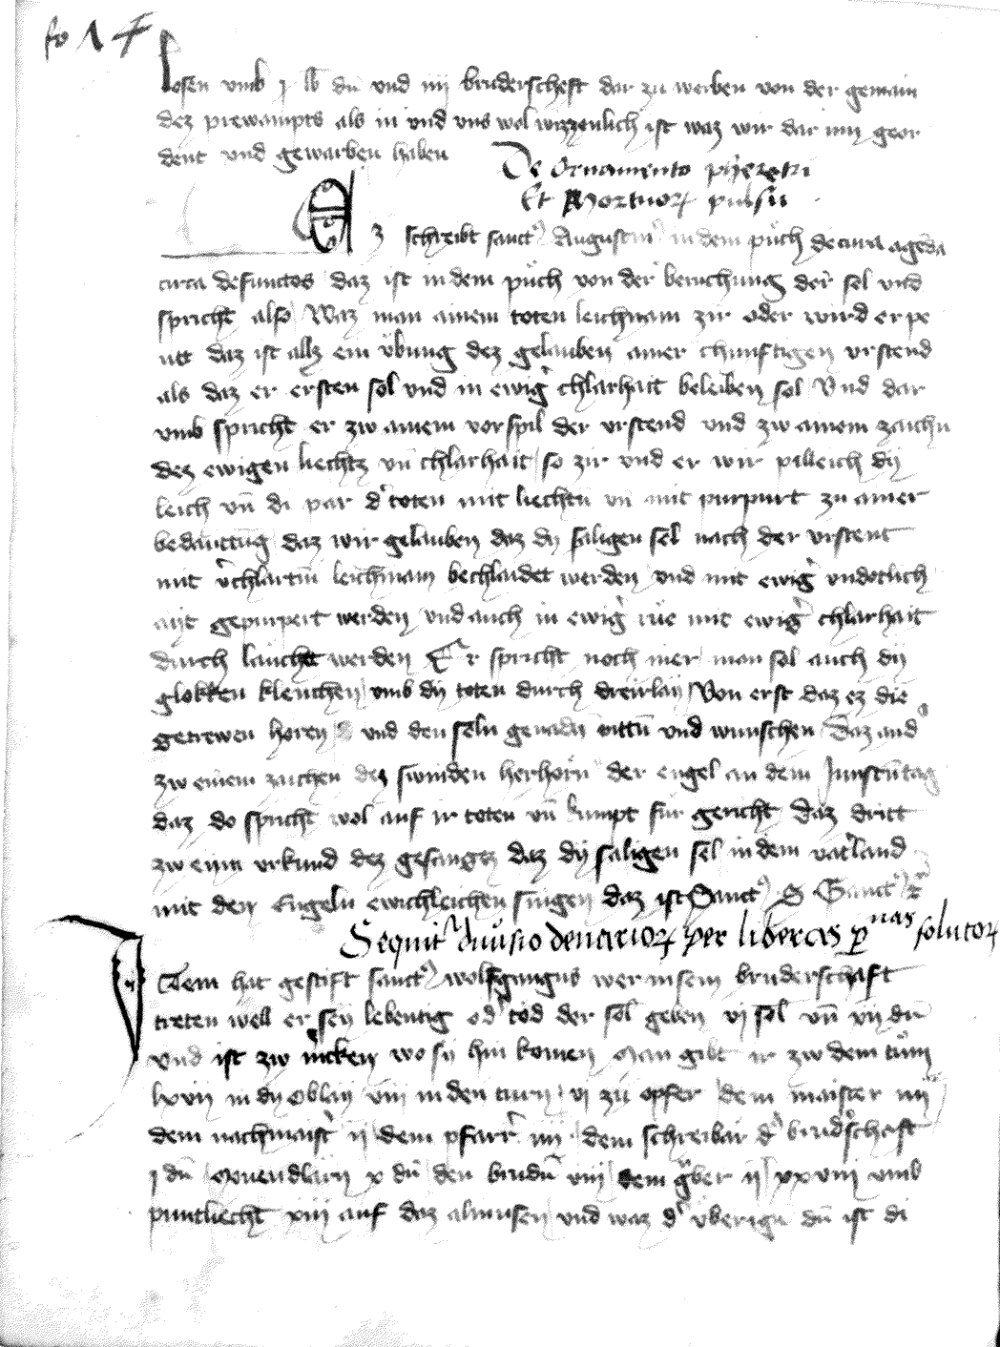 fo 14
losen vmb j lb dn̄ vnd iiij bruderscheft dar zu werben von der gemain
dez prewampts als in vnd vns wol wizzenlich ist waz wir dar inn geor
dent vnd gewarben haben
De Ornamento pheretri
Et Mortuor pulsu
Ez schreibt sanct Augustin in dem puͤch de cura agēda
circa defunctos daz ist in dem puͤch von der beruchung der sel vnd
spricht also Waz man ainem toten leichnam zir oder wird erpe
utt daz ist allz ein uͤbung dez gelauben ainer chunftigen vrstend
als daz er ersten sol vnd in ewig chlarhait beleiben sol Vnd dar
vmb spricht er zw ainem vorspil der vrstend vnd zw ainem zaichn
dez ewigen liechtz vn̄ chlarhait so zir vnd er wir pilleich dy
leich vn̄ di par d toten mit liechtn̄ vn̄ mit purpurt zu ainer
bedauttung daz wir gelauben daz dy saligen sel nach der vrstent
mit vchlartm leichnam bechlaidet werden vnd mit ewig vndotlich
ait gepurpert werden vnd auch in ewig rue mit ewig chlarhait
durch laucht werden Er spricht noch mer man sol auch dy
glokken klenchen vmb dy toten durch dreirlay Von erst daz ez die
getrewen horen vnd den seln genadn̄ bittn̄ vnd wunschen Daz and
zw einem zaichen dez swinden herhorn der engel an dem Jungstn̄tag
daz do spricht wol auf ir toten vn̄ kumpt fur gericht Daz dritt
zw einm vrkund dez gesangez daz dy saligen sel in dem vatland
mit den Engeln ewichleichen singen daz ist Sanct S Sanct
Sequit diuisio denarior per liberas p nas solutor
Item hat gestift sanct wolfgangus wer in sein bruderschaft
treten well er sey lebentig od tod der sol geben vj sol vn̄ vij dn̄
vnd ist zw merken wo sy hin komen Man gibt ir zw dem tuͦm
lxvij in dy oblay viij in den turn vj zu opfer dem maister iiij
dem nachmaist ij dem pfarr iiij dem schreibar d brudschaft
j dn̄ Muendlarn x dn̄ den brudn̄ viij dem gber ij xxviij vmb
puntliecht xiij auf daz almusen vnd waz d uͤberign dn̄ ist di